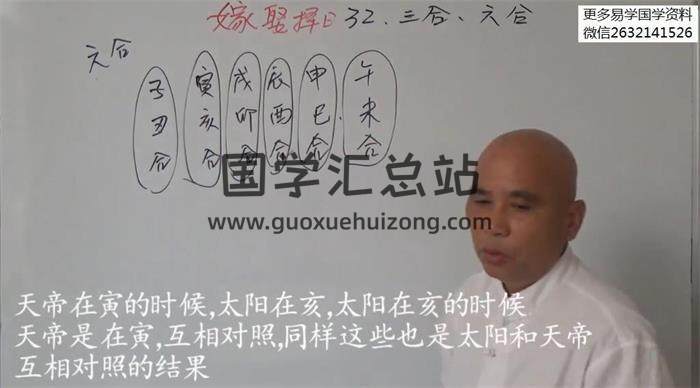 更多易学国学资料
微信2632141526
嫁娶择日32.三合、六合
六合
子丑合
寅亥合
戌卯合
辰酉合
申巳合
午未合
国学汇总站
www.guoxuehuizong.com
天帝在寅的时候,太阳在亥,太阳在亥的时候
天帝是在寅,互相对照,同样这些也是太阳和天帝
互相对照的结果